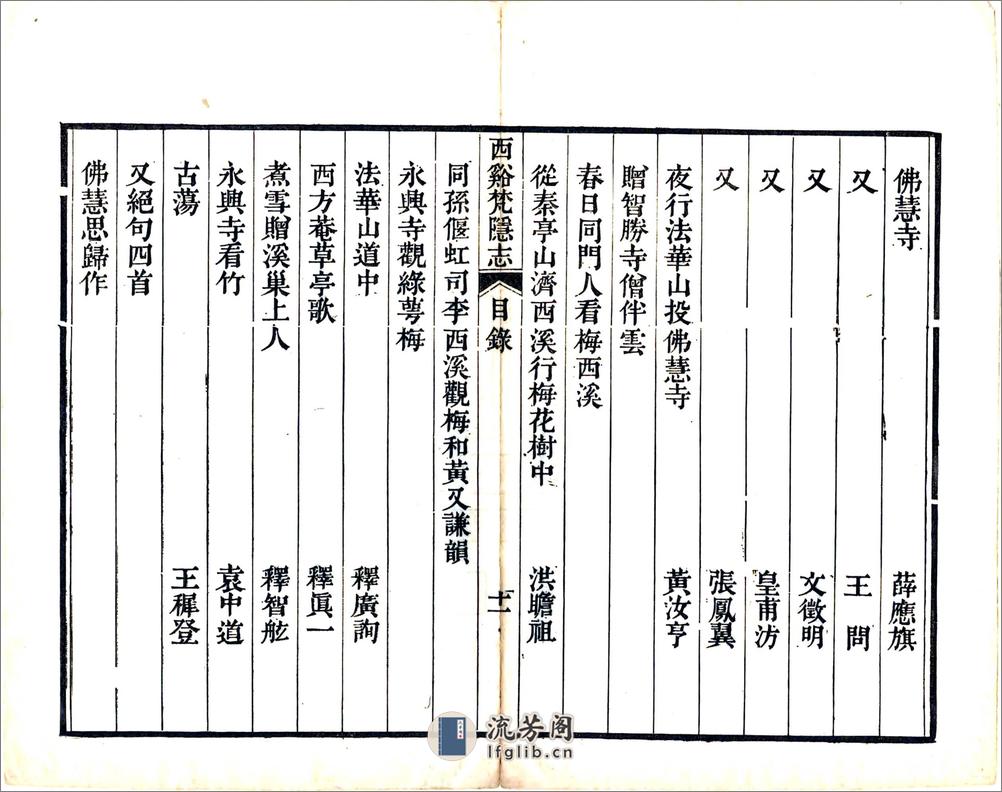 佛慧寺　薛應旗
又　王問
又　文徵明
又　皇甫汸
又　張鳳翼
夜行法華山投佛慧寺　黃汝亨
贈智勝寺僧伴雲
春日同門人看梅西溪
從秦亭山濟西溪行梅花樹中　洪瞻祖
西谿梵隱志　目錄　十一
同孫偃虹司李西溪觀梅和黃又謙韻
永興寺觀綠萼梅
法華山道中　釋廣詢
西方菴草亭歌　釋眞一
煮雪贈溪巢上人　釋智舷
永興寺看竹　袁中道
古蕩　王穉登
又絕句四首
佛慧思歸作
流芳阁
lfglib.cn